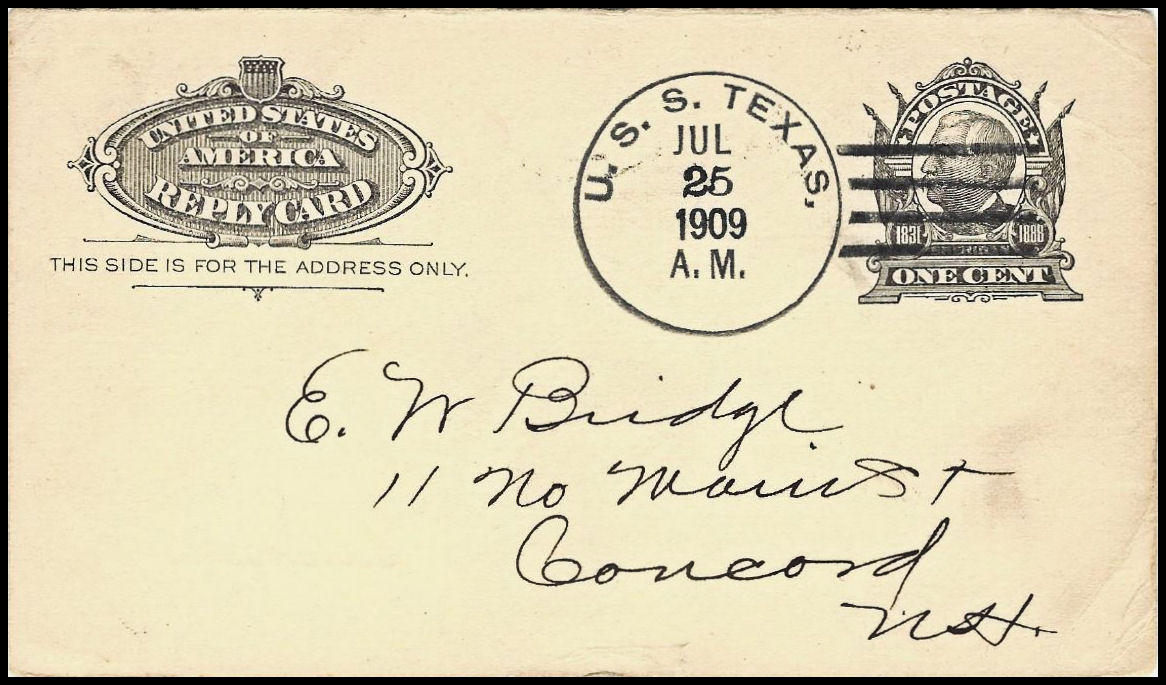 UNITED STATES
OF
AMERICA
REPLY CARD
THIS SIDE IS FOR THE ADDRESS ONLY.
U. S. S. TEXAS,
JUL
25
1909
A. M.
POSTAGE
1831 1888
ONE CENT
E. W Bridge
11 No Main St
Concord
N.H.